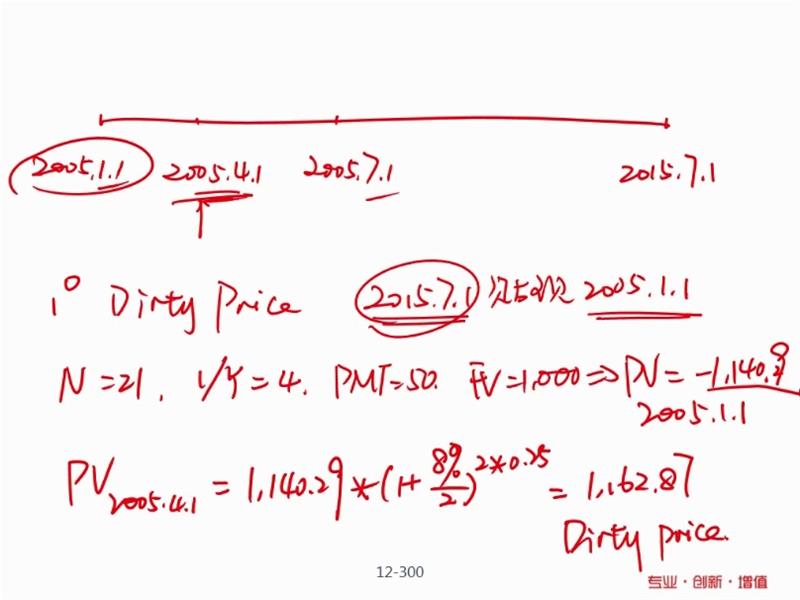 2005.1.1 2005.4.1 2005.7.1 2015.7.1
1° Dirty Price 2015.7.1 2005.1.1
N=21, I/Y=4. PMT=50. FV=1,000 ⇒ PV=-1,140.29
2005.1.1
PV2005.4.1 = 1,140.29*(1+8%/2)^2*0.25 = 1,162.87
Dirty price.
12-300
专业·创新·增值